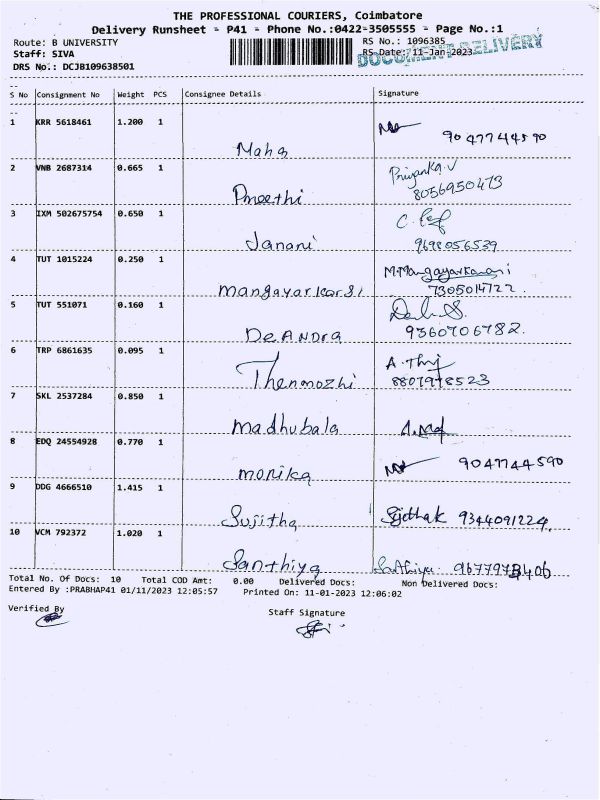 THE PROFESSIONAL COURIERS, Coimbatore
Delivery Runsheet - P41 - Phone No.:0422-3505555 - Page No.:1
Route: B UNIVERSITY RS No.: 1096385
Staff: SIVA RS Date: 11-Jan-2023
DOCUMENT DELIVERY
DRS No.: DCJB109638501
S No Consignment No Weight PCS Consignee Details Signature
1 KRR 5618461 1.200 1
Maha 9047744590
2 VNB 2687314 0.665 1 Priyanka.V
Preethi 8056950473
3 IXM 502675754 0.650 1
Janani 9698056539
4 TUT 1015224 0.250 1 M.Mangayarkarasi
mangayarkarsi 7305014722.
5 TUT 551071 0.160 1
DeANDRA 9360706782.
6 TRP 6861635 0.095 1 A.
Thenmozhi 8807978523
7 SKL 2537284 0.850 1
madhubala
8 EDQ 24554928 0.770 1
monika 9047744590
9 DDG 4666510 1.415 1
Sujitha 9344091224.
10 VCM 792372 1.020 1
Santhiya
Total No. Of Docs: 10 Total COD Amt: 0.00 Delivered Docs: Non Delivered Docs:
Entered By :PRABHAP41 01/11/2023 12:05:57 Printed On: 11-01-2023 12:06:02
Verified By Staff Signature